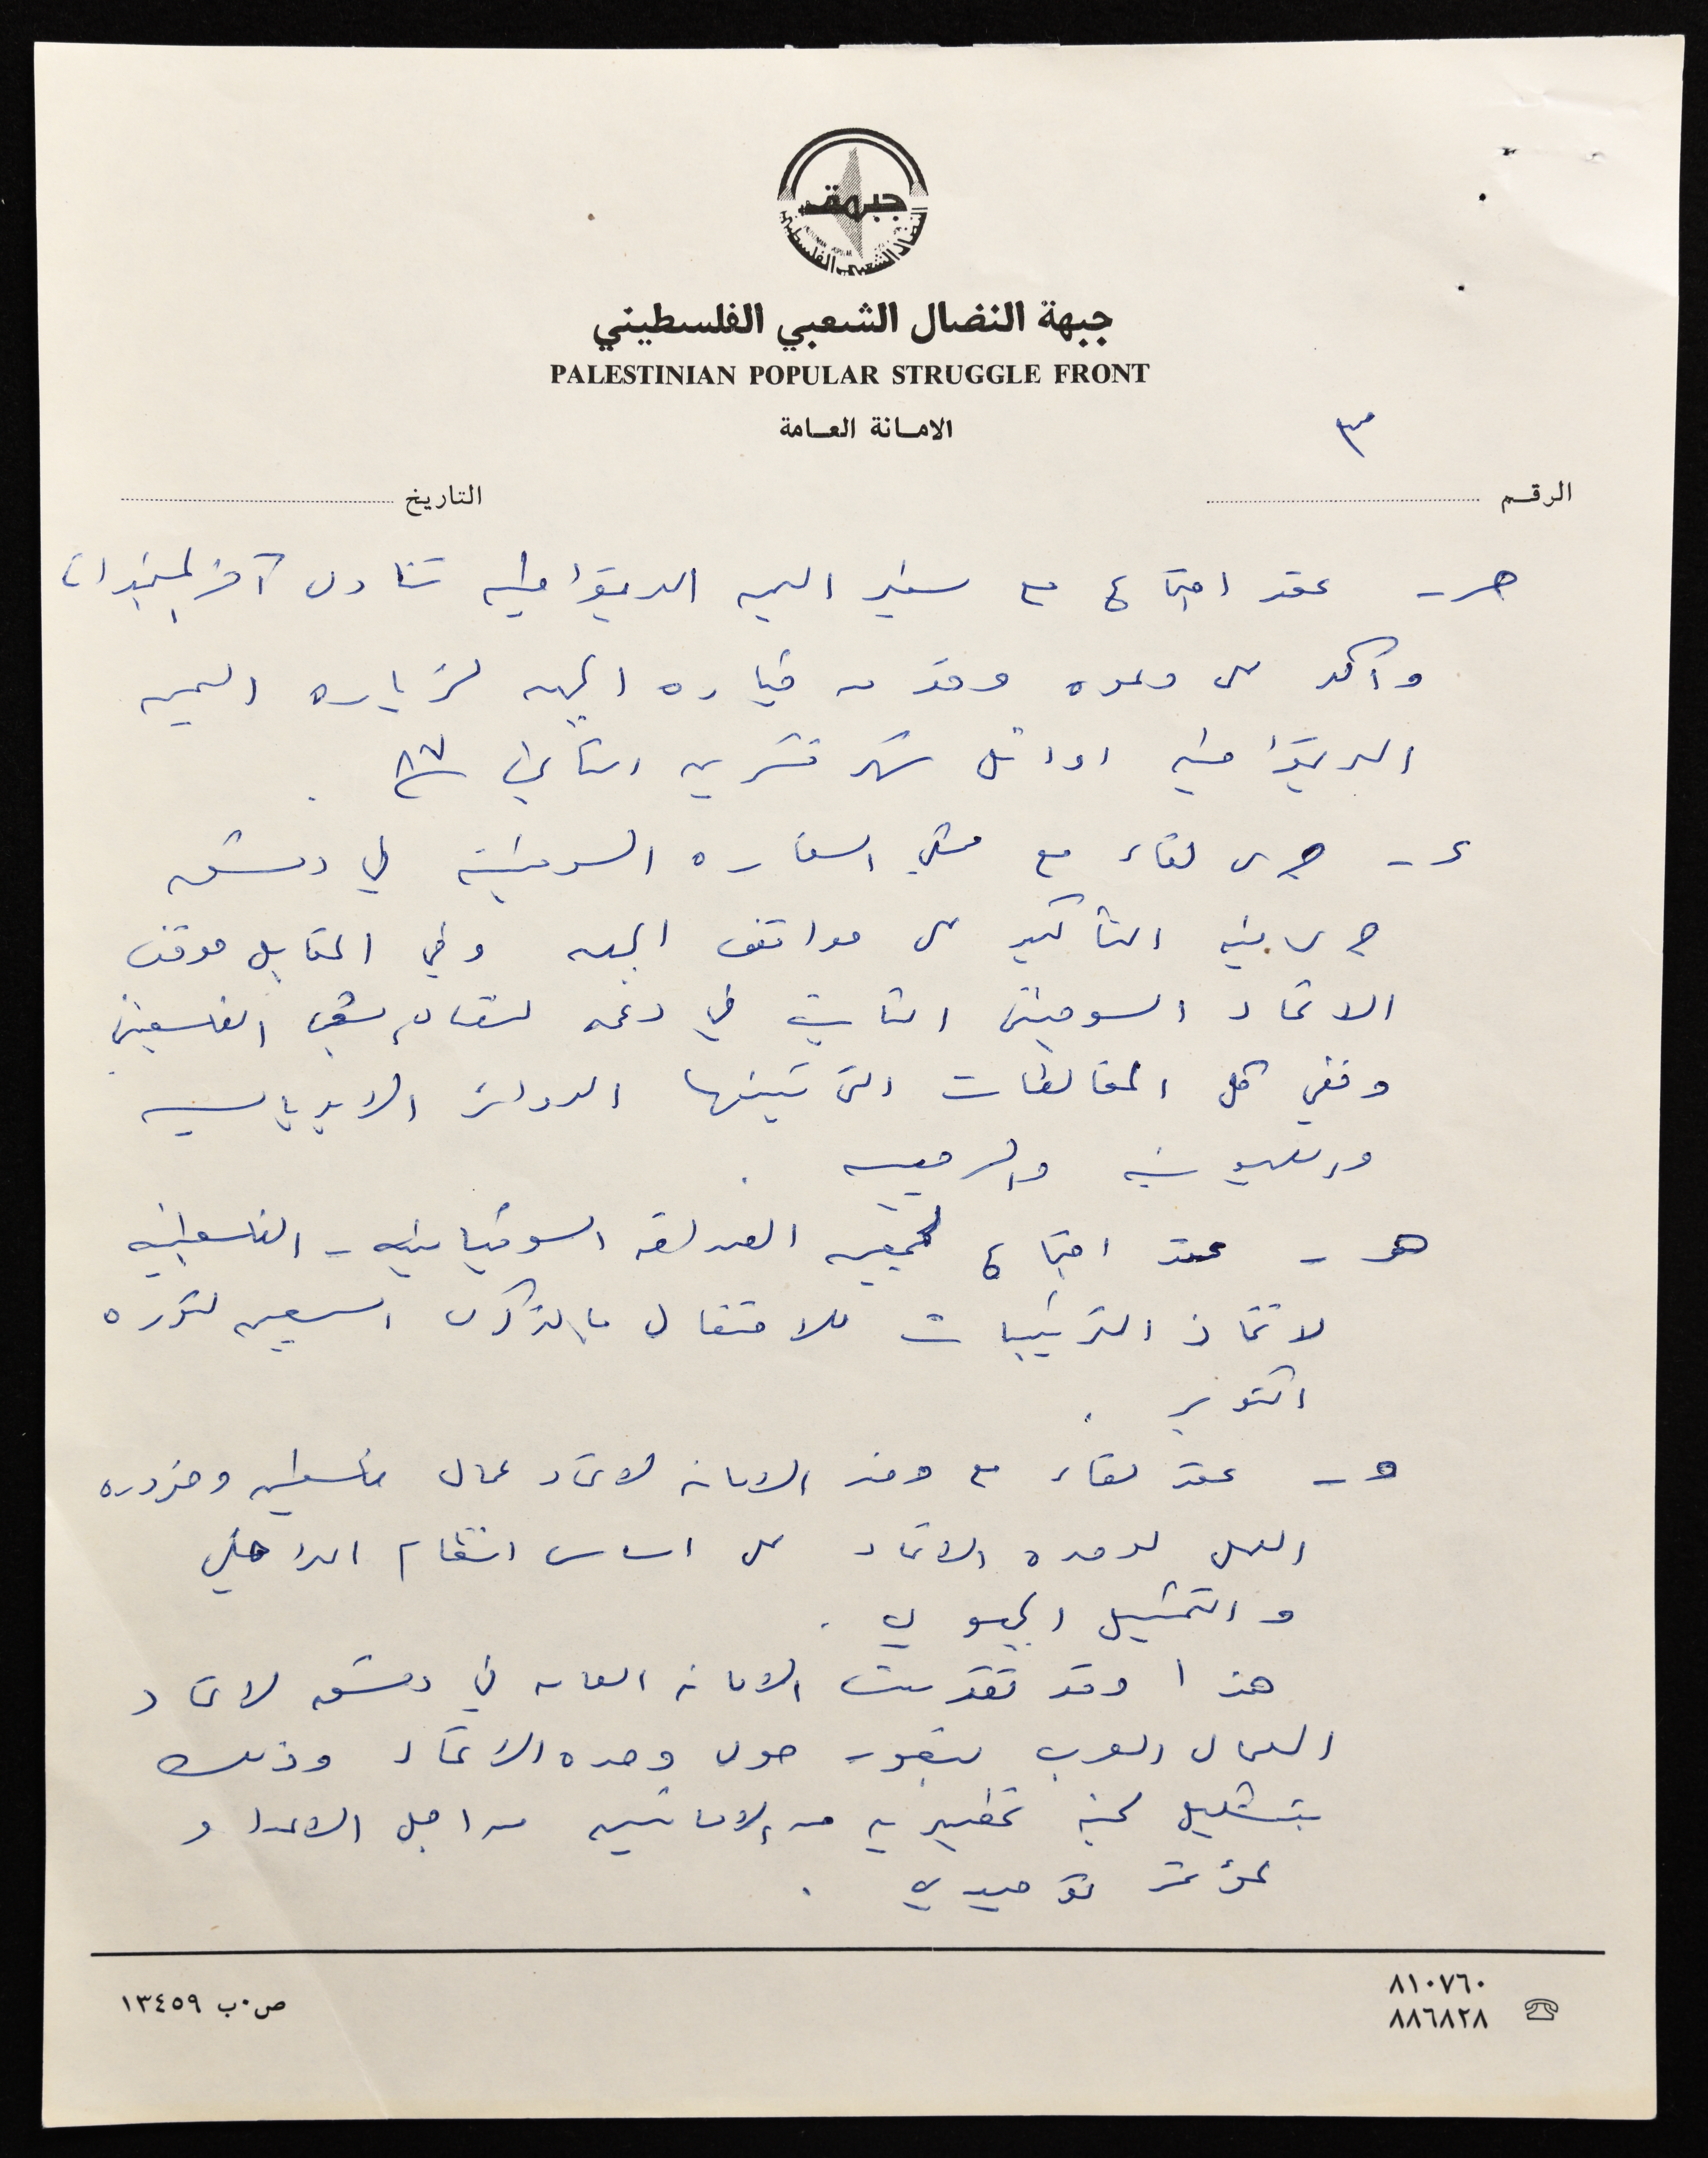 جبهة
النضال الشعبي الفلسطيني
جبهة النضال الشعبي الفلسطيني
PALESTINIAN POPULAR STRUGGLE FRONT
الامانة العامة
٣
الرقم
التاريخ
عقد اجتماع مع سفير اليمن الديمقراطيه تناول آخر
وأكد على دعوه وفد من قياده الجبهه لزياره اليمن
الديمقراطيه اوائل شهر تشرين الثاني ٨٧ .
جرى لقاء مع السفاره السوفيتيه في دمشق
جرى فيه التأكيد على مواقف الجبهه وفي المقابل موقف
الاتحاد السوفيتي الثابت في دعمه الفلسطيني
كل المغالطات التي الدوائر الامبرياليه
والصهيونيه والرجعيه .
هـ - عقد اجتماع لجمعيه الصداقه السوفياتيه - الفلسطينيه
لاتخاذ الترتيبات للاحتفال بالذكرى السبعين لثوره
اكتوبر .
و - عقد لقاء مع وفد الامانه لاتحاد عمال فلسطين وضروره
العمل لوحده الاتحاد على اساس النظام الداخلي
والتمثيل الجبهوي .
هذا وقد تقدمت الامانه العامه في دمشق لاتحاد
العمال العرب بتصور حول وحده الاتحاد وذلك
بتشكيل لجنه تحضيريه من الامانتين من اجل الاعداد
لمؤتمر توحيدي .
٨١٠٧٦٠
٨٨٦٨٢٨
ص.ب ١٣٤٥٩